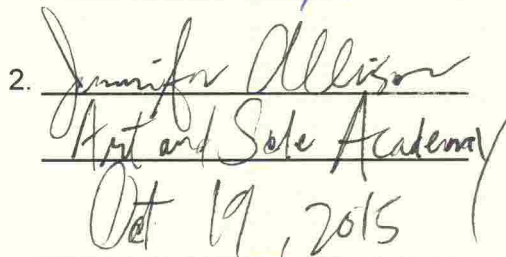 2. Jennifer Allison
Art and Sole Academy
Oct 19, 2015